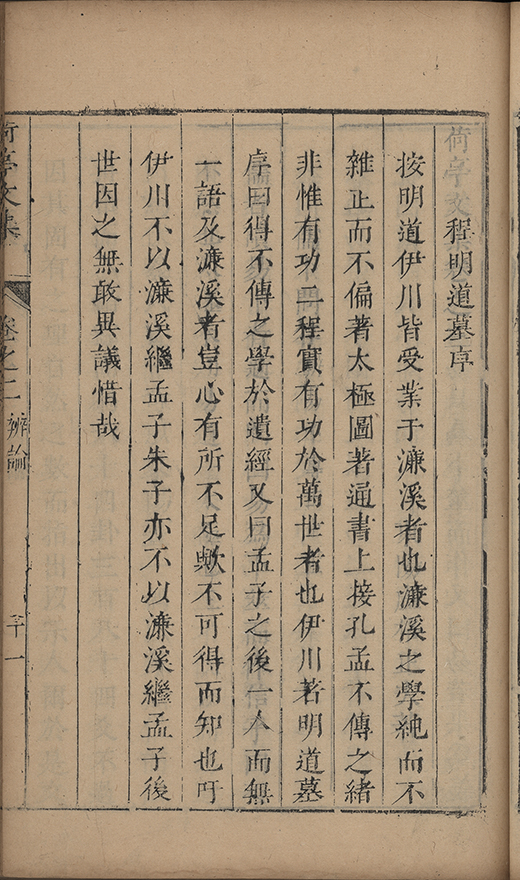 程明道墓序
按明道伊川皆受業于濂溪者也濂溪之學純而不
雜正而不偏著太極圖著通書上接孔孟不傳之緒
非惟有功二程實有功於萬世者也伊川著明道墓
序曰得不傳之學於遺經又曰孟子之後一人而無
一語及濂溪者豈心有所不足歟不可得而知也吁
伊川不以濂溪繼孟子朱子亦不以濂溪繼孟子後
世因之無敢異議惜哉
荷亭文集
卷之二
辨論